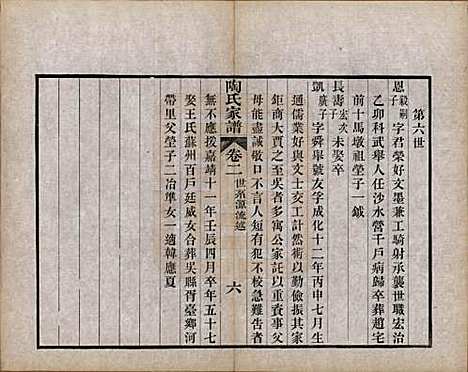 第六世
恩 毅嗣 字君榮好文墨兼工騎射承襲世職宏治
乙卯科武舉人任沙水營千戶病歸卒葬趙宅
前十馬墩祖塋子一鉞
長壽 宏次子 未娶卒
凱 廣子 字舜舉號友孚成化十二年丙申七月生
通儒業好與文士交工計然術以勤儉振其家
鉅商大賈之至吳者多寓公家託以重責事父
母能盡誠敬口不言人短有犯不校急難告者
陶氏家譜 卷二 世系源流述 六
無不應援嘉靖十一年壬辰四月卒年五十七
娶王氏蘇州百戶廷威女合葬吳縣胥臺鄉河
帶里父塋子二冶準女一適韓應夏